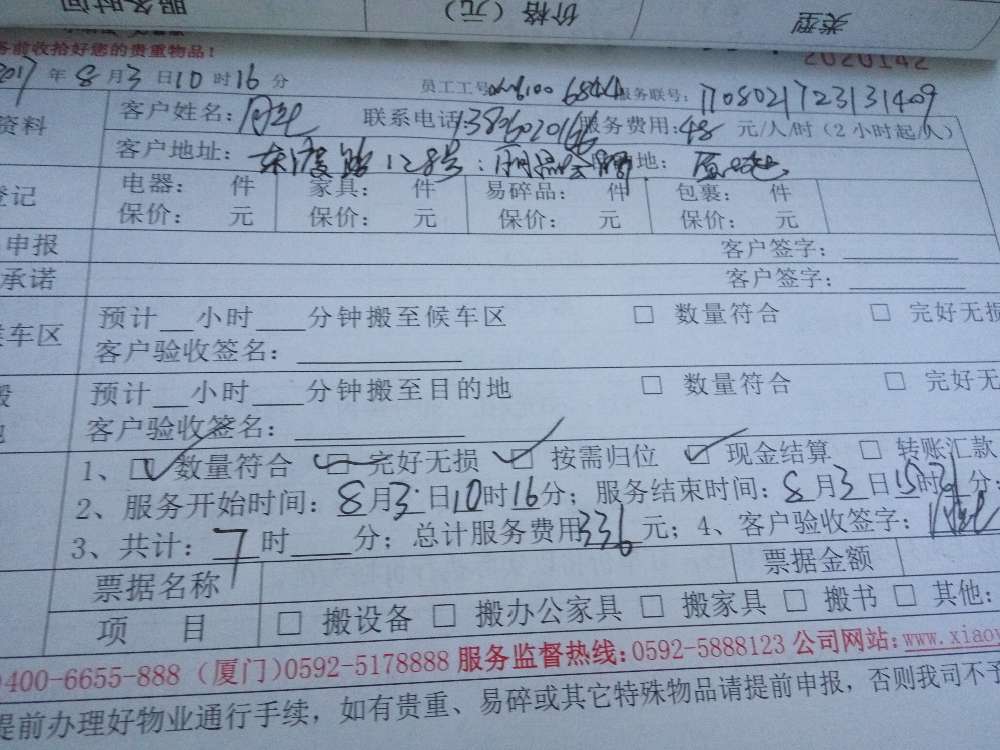 服务时间 价格（元） 类型
务前收拾好您的贵重物品！ 2020142
2017 年 8 月 3 日 10 时 16 分 员工工号 服务联号：
资料 客户姓名： 联系电话： 服务费用：48 元/人/时（2小时起/人）
客户地址：东渡路128号 地：
登记 电器： 件 家具： 件 易碎品： 件 包裹： 件
保价： 元 保价： 元 保价： 元 保价： 元
申报 客户签字：
承诺 客户签字：
候车区 预计 小时 分钟搬至候车区 □ 数量符合 □ 完好无损
客户验收签名：
预计 小时 分钟搬至目的地 □ 数量符合 □ 完好无
客户验收签名：
1、☑数量符合 ☑完好无损 ☑ 按需归位 ☑ 现金结算 □ 转账汇款
2、服务开始时间：8月3日10时16分；服务结束时间：8月3日 时 分；
3、共计：7时 分；总计服务费用336元；4、客户验收签字：
票据名称 票据金额
项 目 □ 搬设备 □ 搬办公家具 □ 搬家具 □ 搬书 □ 其他：
400-6655-888（厦门）0592-5178888 服务监督热线：0592-5888123 公司网站：www.xiao
提前办理好物业通行手续，如有贵重、易碎或其它特殊物品请提前申报，否则我司不予